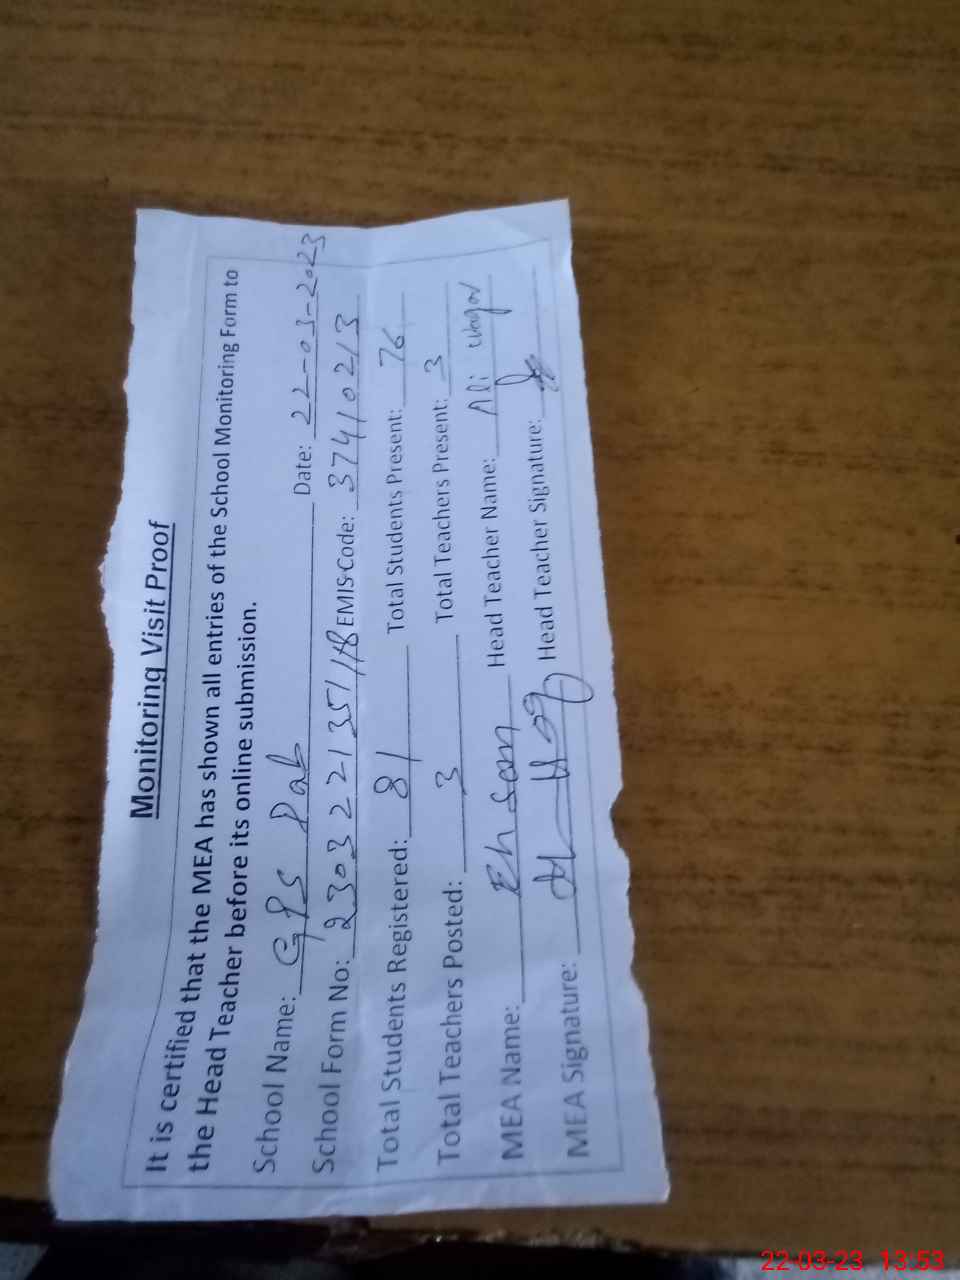 Monitoring Visit Proof
It is certified that the MEA has shown all entries of the School Monitoring Form to
the Head Teacher before its online submission.
School Name: GPS Pab Date: 22-03-2023
School Form No: EMIS Code: 37410213
Total Students Registered: 81 Total Students Present: 76
Total Teachers Posted: 3 Total Teachers Present: 3
MEA Name: Ehsan Head Teacher Name: Ali
MEA Signature: Head Teacher Signature:
22-03-23 13:53